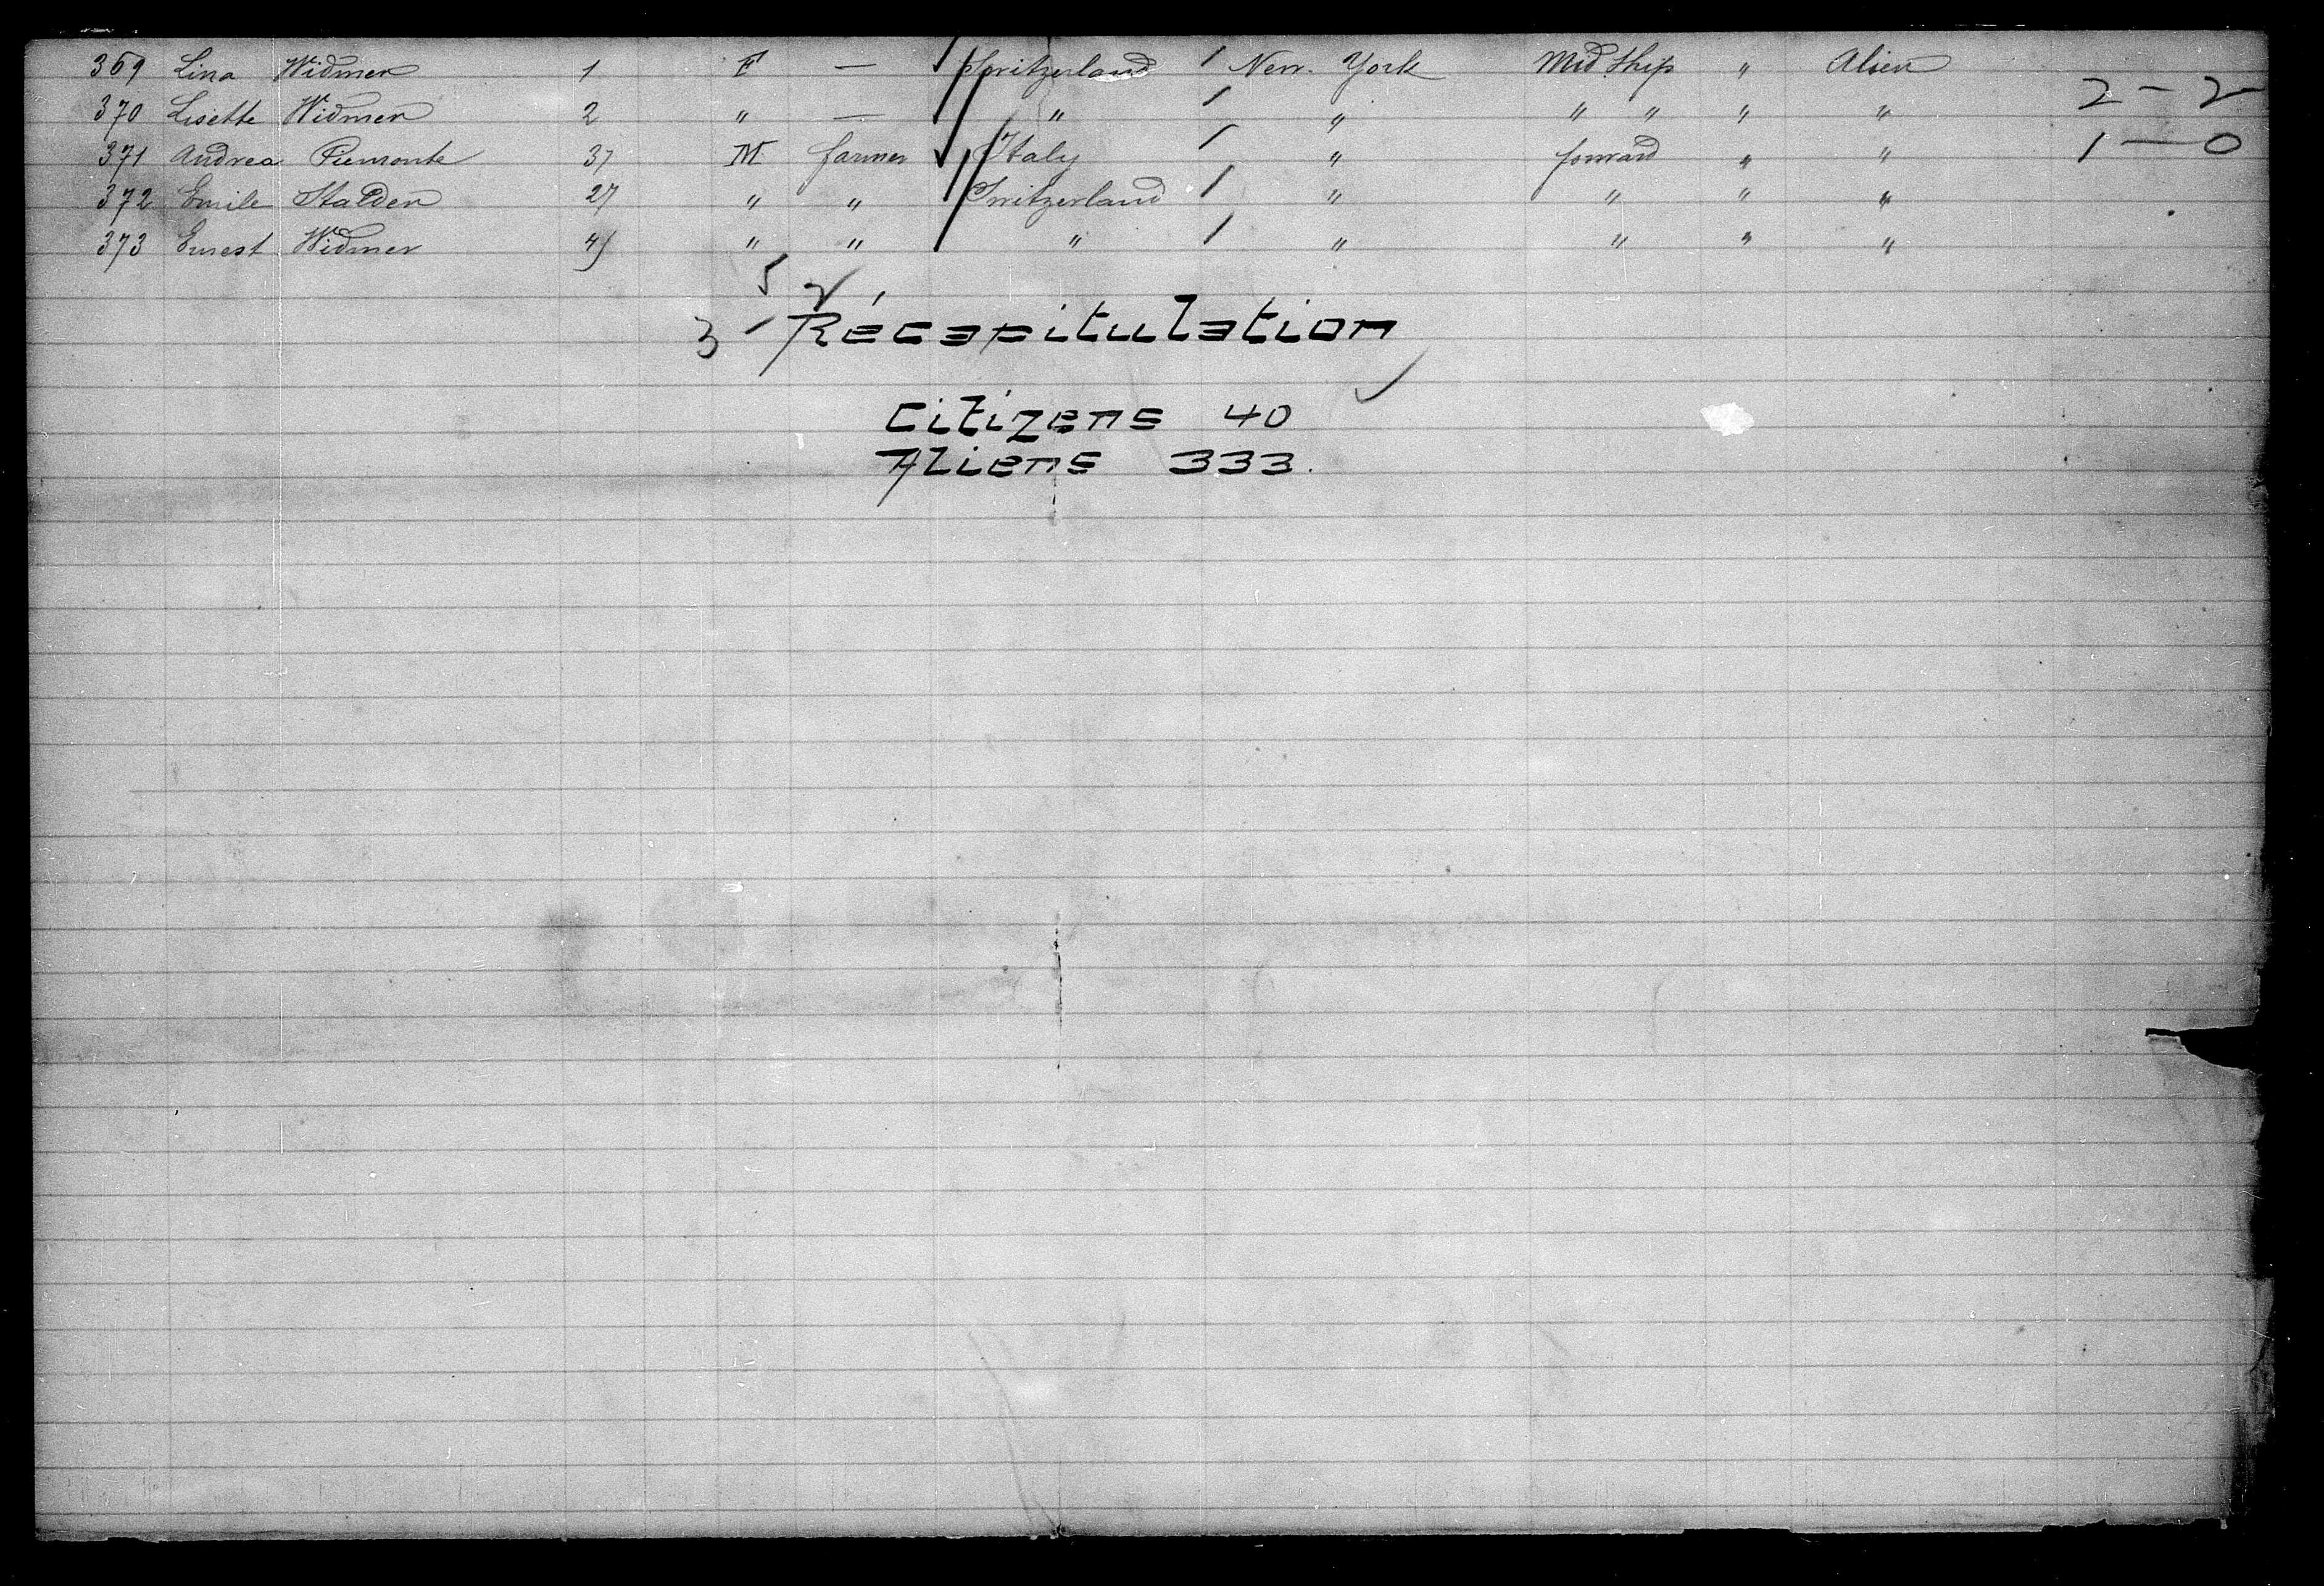 369 Lina Widmer 1 F — Switzerland / New York Mid. Ship " Alien
2 - 2
370 Lisette Widmer 2 " — " / " " " " "
371 Andrea Piemonte 37 M farmer Italy / " forward " " 1 — 0
372 Emile Stalder 27 " " Switzerland / " " " "
373 Ernest Widmer " " " / " " " "
5 2
3 Récapitulation
Citizens 40
Aliens 333.